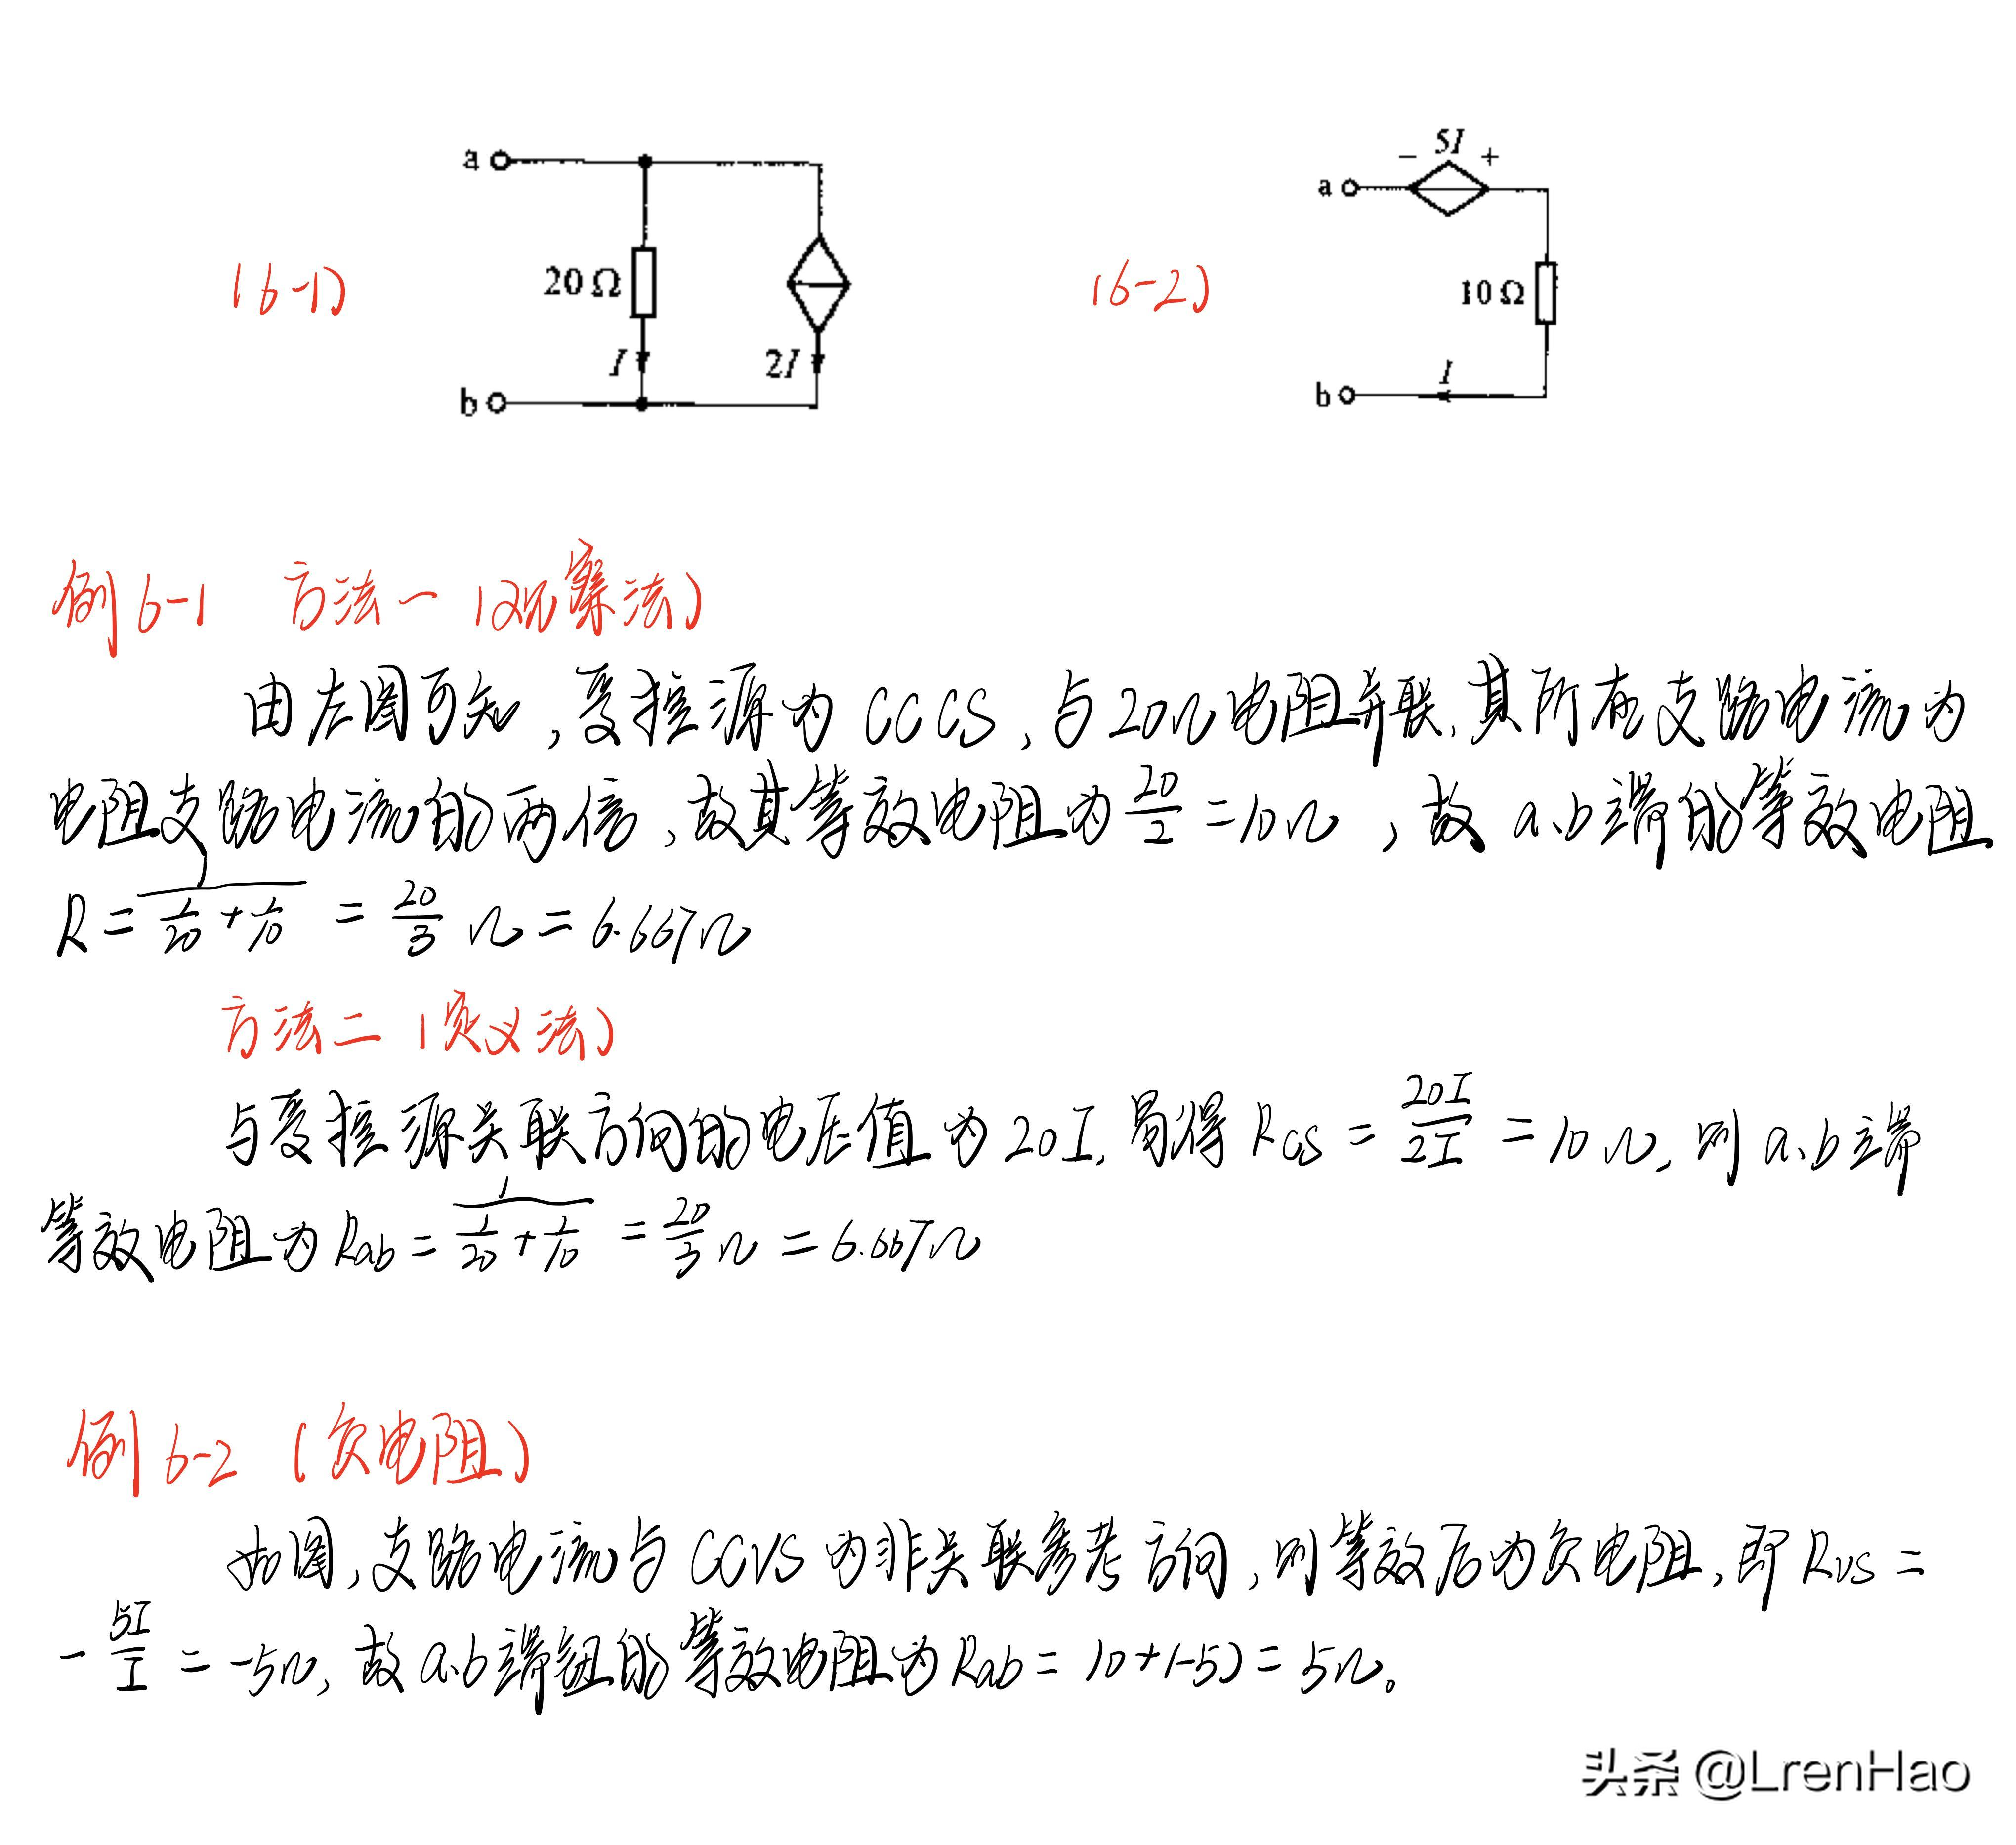 - 5I +
a
a
20 Ω
10 Ω
(6-1)
(6-2)
I
2I
I
b
b
例6-1 方法一(观察法)
由左图可知,受控源为CCCS,与20Ω电阻并联,其所在支路电流为
电阻支路电流的两倍,故其等效电阻为20/2=10Ω,故a、b端的等效电阻
R=1/(1/20+1/10)=20/3Ω=6.667Ω
方法二(定义法)
与受控源关联方向的电压值为20I,易得Rcs=20I/2I=10Ω,则a、b端
等效电阻为Rab=1/(1/20+1/10)=20/3Ω=6.667Ω
例6-2(负电阻)
由图,支路电流与CCVS为非关联参考方向,则等效后为负电阻,即Rvs=
-5I/I=-5Ω,故a、b端钮的等效电阻为Rab=10+(-5)=5Ω。
头条@LrenHao